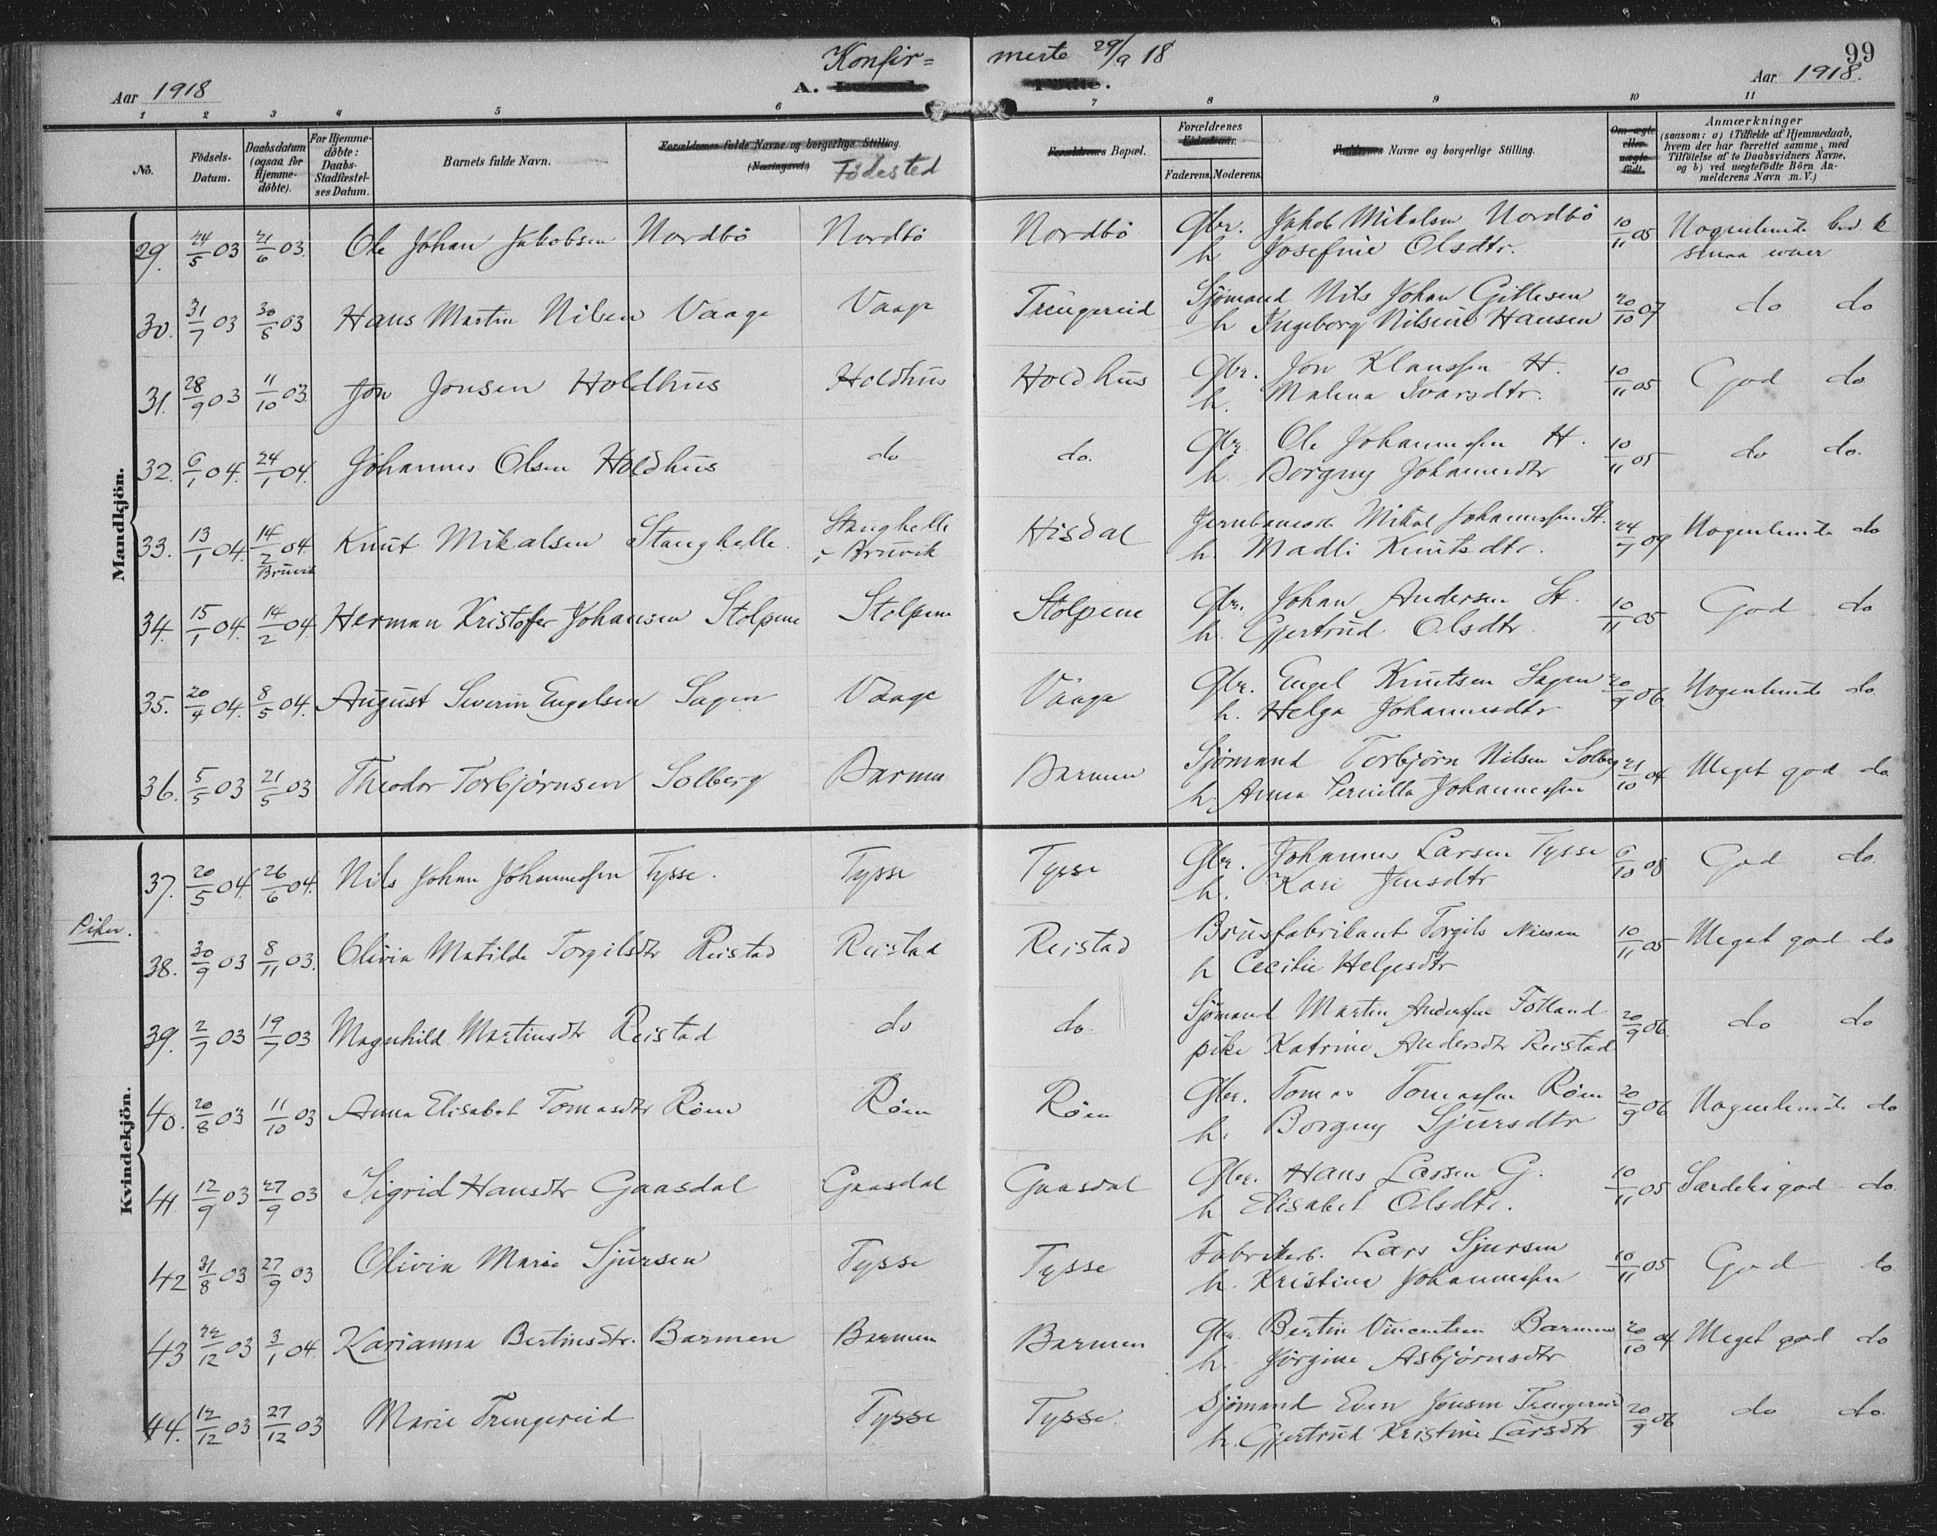 Konfir= merte 29/9 18
99
Aar 1918 A. Födte. Aar 1918.
1 2 3 4 5 6 7 8 9 10 11
No. Födsels-Datum. Daabsdatum (ogsaa for Hjemme-döbte). For Hjemme-döbte: Daabs-Stadfæstel-ses Datum. Barnets fulde Navn. Forældrenes fulde Navne og borgerlige Stilling. (Næringsvei) Födested Forældrenes Bopæl. Forældrenes Födselsaar. Faderens. Moderens. Faddernes Navne og borgerlige Stilling. Om ægte eller uægte födt. Anmærkninger (saasom: a) i Tilfælde af Hjemmedaab, hvem der har forrettet samme, med Tilföielse af to Daabsvidners Navne, og b) ved uægtefödte Börn An-melderens Navn m. V.)
Mandkjön.
29. 24/5 03 21/6 03. Ole Johan Jakobsen Nordbö Nordbö Nordbö Gbr. Jakob Mikalsen Nordbö 10/11 05 Nogenlunde
h. Josefine Olsdtr. smaa evner
30. 31/7 03 30/8 03 Hans Martin Nilsen Vaage Vaage Trengereid Sjömand Nils Johan Gittesen 20/10 07 do do
h Ingeborg Nilsine Hansen
31. 28/9 03 11/10 03. Jon Jonsen Holdhus Holdhus Holdhus Gbr. Jon Klaussen H. 10/11 05 God do
h. Malena Ivarsdtr.
32. 6/1 04. 24/1 04. Johannes Olsen Holdhus do do. Gbr Ole Johannessen H. 10/11 05 do do.
h. Borgny Johannesdtr
33. 13/1 04. 14/2 04 Knut Mikalsen Stanghelle Stanghelle Hisdal Mikal Johannessen St. 24/7 09 Nogenlunde do
Bruvik i Bruvik h. Madli Knutsdtr.
34. 15/1 04. 14/2 04 Herman Kristofer Johansen Stolpene Stolpene Stolpene Gbr. Johan Andersen St. 10/11 05 God do
h. Gjertrud Olsdtr
35. 20/4 04. 8/5 04. August Severin Engelsen Sagen Vaage Vaage Gbr. Engel Knutsen Sagen 20/9 06. Nogenlunde do
h. Helga Johannesdtr
36. 5/5 03 21/5 03 Theodor Torbjørnsen Solberg Barmen Barmen Sjömand Torbjörn Nilsen Solberg 21/10 04 Meget god do
h. Anna Pernilla Johannessen
37. 20/5 04. 26/6 04. Nils Johan Johannessen Tysse. Tysse Tysse Gbr. Johannes Larsen Tysse 6/10 08 God do.
h. Kari Jensdtr
Piker.
Kvindekjön.
38. 30/9 03 8/11 03. Olivia Matilde Torgilsdtr Reistad Reistad Reistad Brusfabrikant Torgils Nilsen 10/11 05 Meget god do
h Cecilie Helgesdtr
39. 2/7 03 19/7 03 Magnhild Martinsdtr Reistad do do. Sjömand Martin Andersen Totland 20/9 06. do do
pike Katrine Andersdtr Reistad
40. 20/8 03 11/10 03 Anna Elisabet Tomasdtr Röen Röen Röen Gbr. Tomas Tomassen Röen 20/9 06 Nogenlunde do
h. Borgny Sjursdtr
41. 12/9 03 27/9 03 Sigrid Hansdtr Gaasdal Gaasdal Gaasdal Gbr. Hans Lassen G. 10/11 05 Særdeles god do.
h Elisabet Olsdtr.
42 31/8 03 27/9 03 Olivia Marie Sjursen Tysse Tysse Fabrikarb. Lars Sjursen 10/11 05 God do
h. Kristina Johannessen
43 22/12 03 3/1 04. Karianna Bertinsdtr. Barmen Barmen Barmen Gbr Bertin Vincentsen Barmen 20/10 04 Meget god do
h. Jörgine Asbjørnsdtr
44. 12/12 03 27/12 03 Marie Trengereid Tysse Tysse. Sjömand Even Jensen Trengereid 20/9 06 do do.
h. Gjertrud Kristine Larsdtr